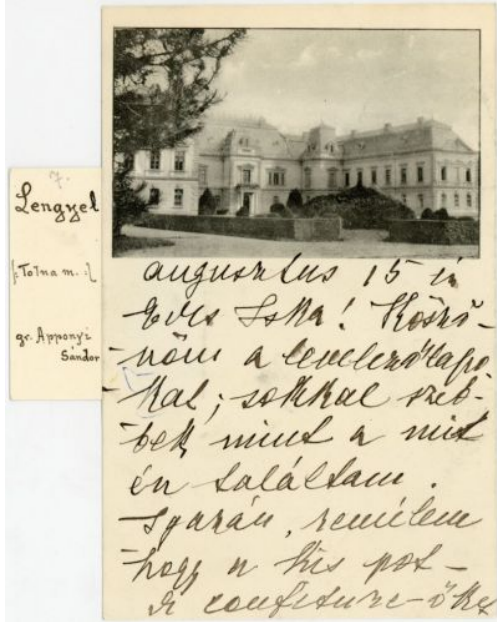 7.
Lengyel
[: Tolna m. :]
gr. Apponyi
Sándor
augusztus 15 én
Édes Iska! Köszö-
nöm a levelezőlapo-
kat; sokkal szeb-
bek mint a mit
én találtam.
Igazán, remélem
hogy a kis pot-
à confiture-őket